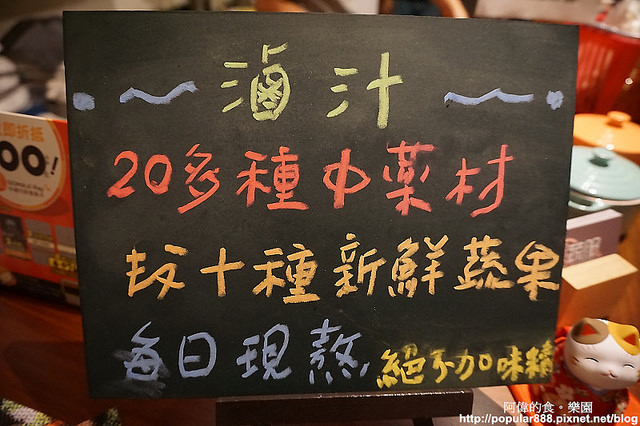 滷汁
20多種中藥材
十種新鮮蔬果
每日現熬 絕不加味精
即折抵
00!
阿偉的食。樂園
http://popular888.pixnet.net/blog